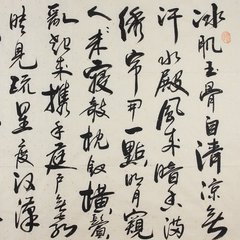 冰肌玉骨自清涼無
汗水殿風來暗香滿
繡帘開一點明月窺
人人未寢欹枕釵橫鬢
亂起來攜手庭戶無聲
時見疏星度河漢